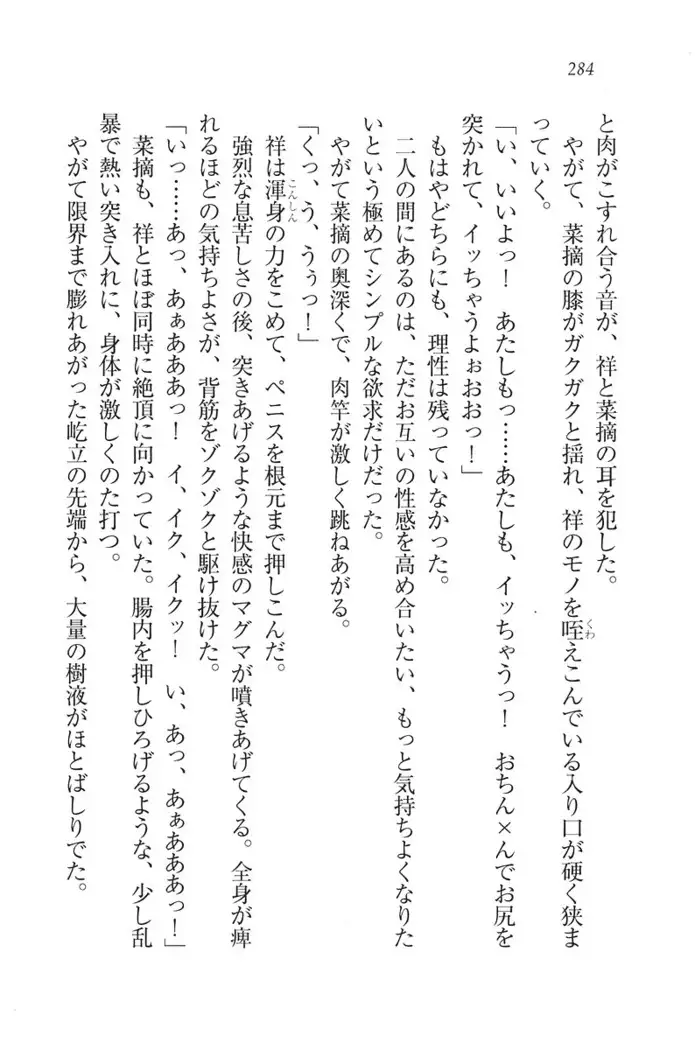 284
と肉がこすれ合う音が、祥と菜摘の耳を犯した。
やがて、菜摘の膝がガクガクと揺れ、祥のモノを咥えこんでいる入り口が硬く狭ま
くわ
っていく。
「い、いいよっ！　あたしもっ……あたしも、イッちゃうっ！　おちん×んでお尻を
突かれて、イッちゃうよぉおおっ！」
もはやどちらにも、理性は残っていなかった。
二人の間にあるのは、ただお互いの性感を高め合いたい、もっと気持ちよくなりた
いという極めてシンプルな欲求だけだった。
やがて菜摘の奥深くで、肉竿が激しく跳ねあがる。
「くっ、う、うぅっ！」
祥は渾身の力をこめて、ペニスを根元まで押しこんだ。
こんしん
強烈な息苦しさの後、突きあげるような快感のマグマが噴きあげてくる。全身が痺
れるほどの気持ちよさが、背筋をゾクゾクと駆け抜けた。
「いっ……あっ、あぁあああっ！　イ、イク、イクッ！　い、あっ、あぁあああっ！」
菜摘も、祥とほぼ同時に絶頂に向かっていた。腸内を押しひろげるような、少し乱
暴で熱い突き入れに、身体が激しくのた打つ。
やがて限界まで膨れあがった屹立の先端から、大量の樹液がほとばしりでた。